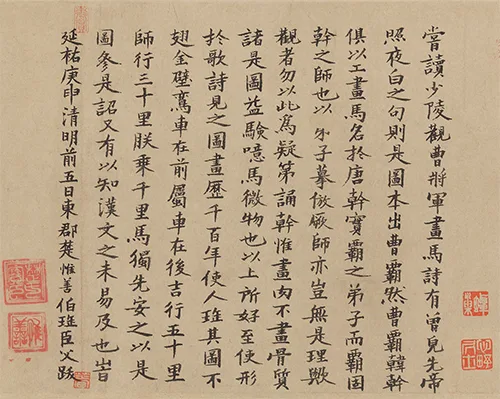 嘗讀少陵觀曹將軍畫馬詩有曾見先帝
照夜白之句則是圖本出曹霸然曹霸韓幹
俱以工畫馬名於唐幹實霸之弟子而霸固
幹之師也以弟子摹倣厥師亦豈無是理歟
觀者勿以此爲疑第誦幹惟畫肉不畫骨質
諸是圖益驗噫馬微物也以上所好至使形
於歌詩見之圖畫歷千百年使人珍其圖不
翅金璧鸞車在前屬車在後吉行五十里
師行三十里朕乘千里馬獨先安之以是
圖參是詔又有以知漢文之未易及也旹
延祐庚申清明前五日東郡楚惟善伯珪臣父跋